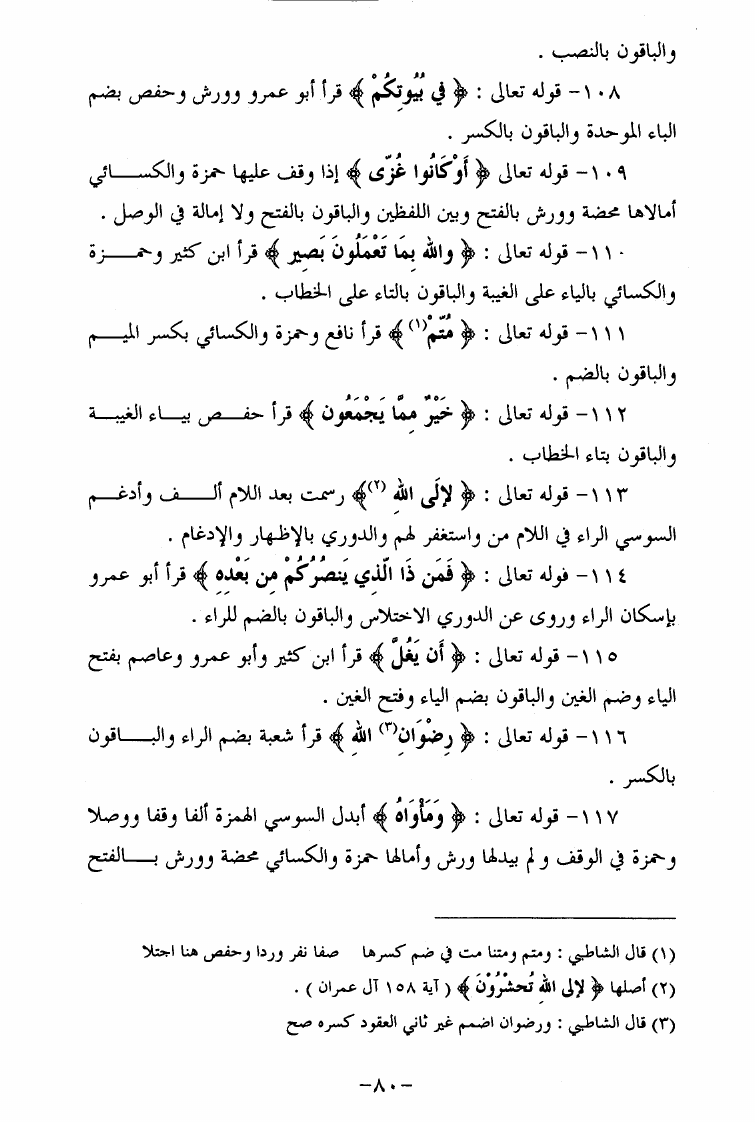 والباقون بالنصب .
١٠٨- قوله تعالى : ﴿ في بُيُوتِكُمْ ﴾ قرأ أبو عمرو وورش وحفص بضم
الباء الموحدة والباقون بالكسر .
١٠٩- قوله تعالى ﴿ أَوْكَانُوا غُزّى ﴾ إذا وقف عليها حمزة والكسائي
أمالاها محضة وورش بالفتح وبين اللفظين والباقون بالفتح ولا إمالة في الوصل .
١١٠- قوله تعالى : ﴿ والله بِمَا تَعْمَلُونَ بَصِير ﴾ قرأ ابن كثير وحمزة
والكسائي بالياء على الغيبة والباقون بالتاء على الخطاب .
١١١- قوله تعالى : ﴿ مُتّمْ(١) ﴾ قرأ نافع وحمزة والكسائي بكسر الميم
والباقون بالضم .
١١٢- قوله تعالى : ﴿ خَيْرٌ مِمَّا يَجْمَعُون ﴾ قرأ حفص بياء الغيبة
والباقون بتاء الخطاب .
١١٣- قوله تعالى : ﴿ لإلَى اللهِ (٢)﴾ رسمت بعد اللام ألف وأدغم
السوسي الراء في اللام من واستغفر لهم والدوري بالإظهار والإدغام .
١١٤- فوله تعالى : ﴿ فَمَن ذَا الّذِي يَنصُرُكُمْ مِن بَعْدِه ﴾ قرأ أبو عمرو
بإسكان الراء وروى عن الدوري الاختلاس والباقون بالضم للراء .
١١٥- قوله تعالى : ﴿ أَن يَغُلَّ ﴾ قرأ ابن كثير وأبو عمرو وعاصم بفتح
الياء وضم الغين والباقون بضم الياء وفتح الغين .
١١٦- قوله تعالى : ﴿ رِضْوَانِ(٣) اللهِ ﴾ قرأ شعبة بضم الراء والباقون
بالكسر .
١١٧- قوله تعالى : ﴿ وَمَأْوَاهُ ﴾ أبدل السوسي الهمزة ألفا وقفا ووصلا
وحمزة في الوقف و لم يبدلها ورش وأمالها حمزة والكسائي محضة وورش بالفتح
(١) قال الشاطبي : ومتم ومتنا مت في ضم كسرها صفا نفر وردا وحفص هنا اجتلا
(٢) أصلها ﴿ لإلى اللهِ تُحشْرُوْنَ ﴾ ( آية ١٥٨ آل عمران ) .
(٣) قال الشاطبي : ورضوان اضمم غير ثاني العقود كسره صح
-٨٠-